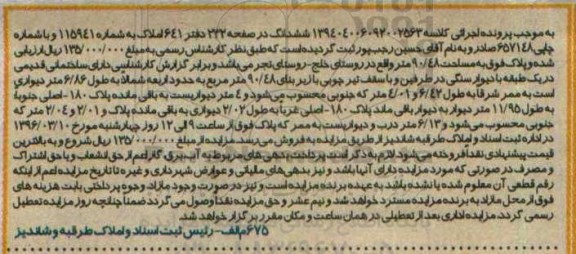 به موجب پرونده اجرائی کلاسه ۱۳۹۴۰۴۰۰۶۰۹۲۰۰۲۵۶۳ ششدانگ در صفحه ۲۳۲ دفتر ۶۴۱ املاک به شماره ۱۱۵۹۴۱ و با شماره
چاپی ۶۵۷۱۴۸ صادر و به نام آقای حسین رجب پور ثبت گردیده است که طبق نظر کارشناس رسمی به مبلغ ۱۳۵/۰۰۰/۰۰۰ ریال ارزیابی
شده و پلاک فوق به مساحت ۹۰/۴۸ متر واقع در روستای خلج - روستای نجر می باشد و برابر گزارش کارشناسی دارای ساختمانی قدیمی
در یک طبقه با دیوار سنگی در طرفین و با سقف تیر چوبی با زیر بنای ۹۰/۴۸ متر مربع به حدود اربعه شمالا به طول ۶/۸۶ متر دیواری
است به ممر شرقا به طول ۶/۴۲ و ۴/۰۱ متر که جنوبی محسوب می شود و ۴ متر دیواریست به باقی مانده پلاک ۱۸۰- اصلی جنوبا
به طول ۱۱/۹۵ متر دیوار به دیوار باقی ماند پلاک ۱۸۰- اصلی غربا به طول ۲/۰۲ دیواری به باقی مانده پلاک و ۲/۰۱ و ۲/۰۴ متر که
جنوبی محسوب می شود و ۶/۱۳ متر درب و دیواریست به ممر که پلاک فوق از ساعت ۹ الی ۱۲ روز چهارشنبه مورخ ۱۳۹۶/۰۳/۱۰
در اداره ثبت اسناد و املاک طرقبه شاندیز از طریق مزایده به فروش می رسد. مزایده از مبلغ ۱۳۵/۰۰۰/۰۰۰ ریال شروع و به بالاترین
قیمت پیشنهادی نقدا فروخته می شود. لازم به ذکر است پرداخت بدهی های مربوطه به آب، برق، گاز اعم از حق انشعاب و یا حق اشتراک
و مصرف در صورتی که مورد مزایده دارای آنها باشد و نیز بدهی های مالیاتی و عوارض شهرداری و غیره تا تاریخ مزایده اعم از اینکه
رقم قطعی آن معلوم شده یا نشده باشد به عهده برنده مزایده است و نیز در صورت وجود مازاد، وجوه پرداختی بابت هزینه های
فوق از محل مازاد به برنده مزایده مسترد خواهد شد و نیم عشر و حق مزایده نقدا وصول می گردد ضمنا چنانچه روز مزایده تعطیل
رسمی گردد، مزایده اداری بعد از تعطیلی در همان ساعت و مکان مقرر برگزار خواهد شد.
۶۷۵/م الف - رئیس ثبت اسناد و املاک طرقبه و شاندیز